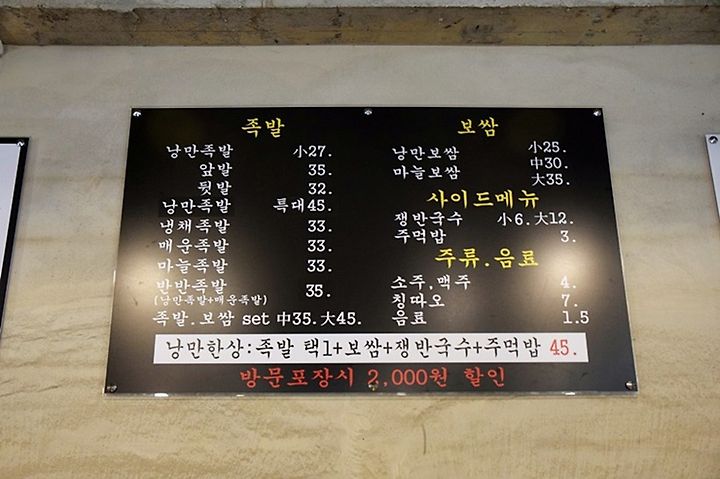 족발
낭만족발 小27.
앞발 35.
뒷발 32.
낭만족발 특대45.
냉채족발 33.
매운족발 33.
마늘족발 33.
반반족발 35.
(낭만족발+매운족발)
족발.보쌈 set 中35.大45.
보쌈
낭만보쌈 小25.
마늘보쌈 中30.
大35.
사이드메뉴
쟁반국수 小6.大12.
주먹밥 3.
주류.음료
소주,맥주 4.
칭따오 7.
음료 1.5
낭만한상:족발 택1+보쌈+쟁반국수+주먹밥 45.
방문포장시 2,000원 할인